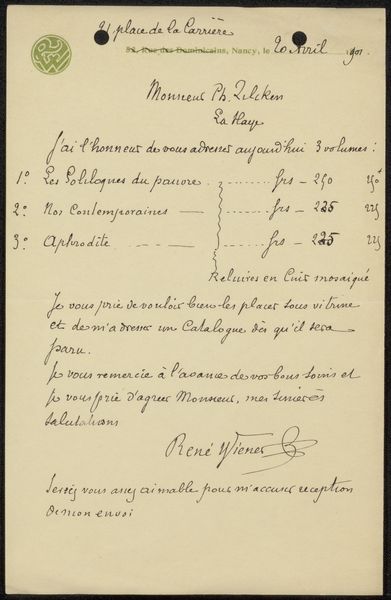 21 place de la Carrière
53, Rue des Dominicains, Nancy, le 20 Avril 1901
Monsieur Ph. Zilcken
La Haye
J'ai l'honneur de vous adresser aujourd'hui 3 volumes :
1º Les Soliloques du pauvre ........ frs — 250 250
2º Nos Contemporains — ........ frs — 225 225
3º Aphrodite — ........ frs — 225 225
Reliures en Cuir mosaïqué
Je vous prie de vouloir bien les placer sous vitrine
et de m'adresser un Catalogue dès qu'il sera
paru.
Je vous remercie à l'avance de vos bons soins et
je vous prie d'agréer Monsieur, mes sincères
salutations
René Wiener
Seriez vous assez aimable pour m'accuser reception
de mon envoi